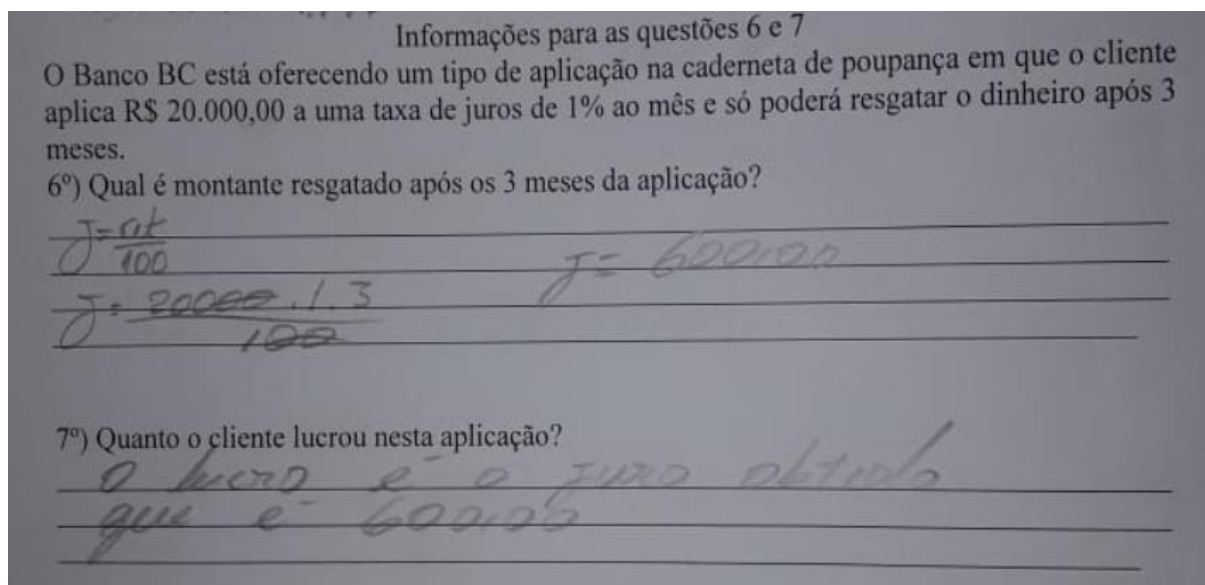 Informações para as questões 6 e 7
O Banco BC está oferecendo um tipo de aplicação na caderneta de poupança em que o cliente
aplica R$ 20.000,00 a uma taxa de juros de 1% ao mês e só poderá resgatar o dinheiro após 3
meses.
6º) Qual é montante resgatado após os 3 meses da aplicação?
J = cit
100
J = 600,00
J = 20000 . 1 . 3
100
7º) Quanto o cliente lucrou nesta aplicação?
O lucro é o juro obtido
que é 600,00